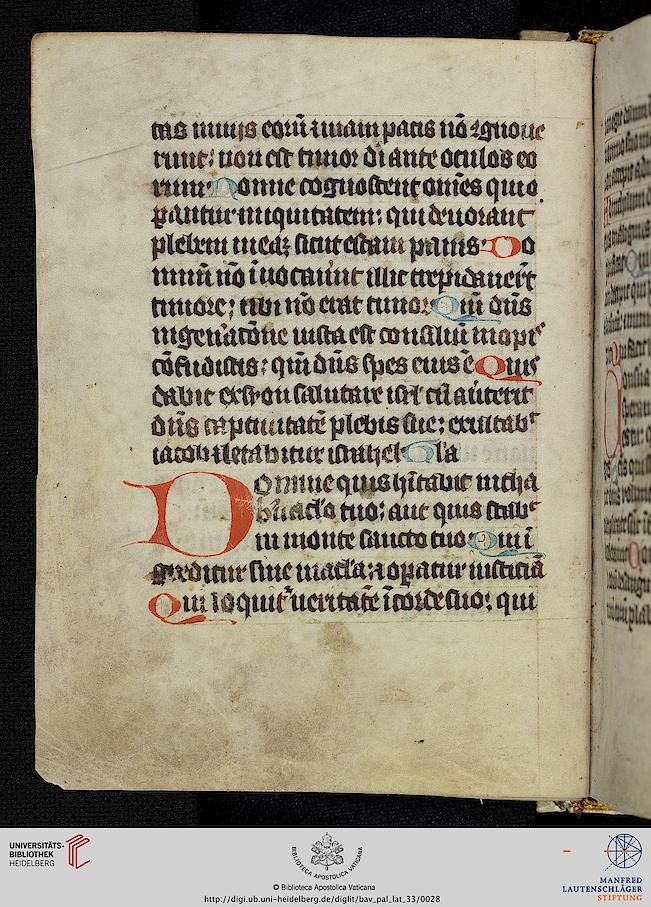 tas in uijs eorũ ⁊ uiam pacis nõ ꝯgnoue
runt: non est timor di ante oculos eo
rum Nonne cognoscent om̃es qui o
ꝑantur iniquitatem: qui deuorant
plebem meaꝫ sicut escam panis Do
minũ nõ ĩuocauer̃t illic trepidauer̃t
timore; ubi nõ erat timor Qm̃ dñs
in gen̾atõne iusta est consiliũ inopis
cõfudistis: qm̃ dñs spes eius ẽ Quis
dabit ex syon salutare isrl̃ cũ auterit
dñs captiuitatẽ plebis sue: exultabᷣ
iacob ⁊ letabitur israhel Gl̃a
Domine quis hĩtabit in tha
b̾nacl̃o tuo: aut quis
in monte sancto tuo Qui ĩ
greditur sine macl̃a: ⁊ oꝑatur iusticiã
Qui loquitᷣ ueritatẽ ĩ corde suo: qui
UNIVERSITÄTS-
BIBLIOTHEK
HEIDELBERG
BIBLIOTECA APOSTOLICA VATICANA
© Biblioteca Apostolica Vaticana
http://digi.ub.uni-heidelberg.de/diglit/bav_pal_lat_33/0028
MANFRED
LAUTENSCHLÄGER
STIFTUNG